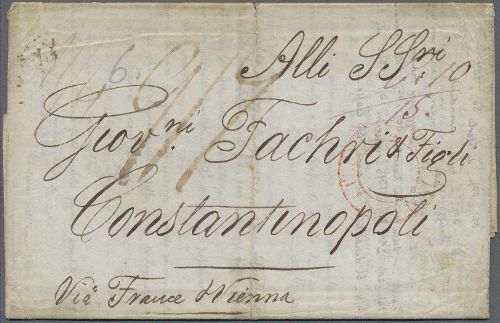 Alli SSri
Giov.ni Fachri & Figli
Constantinopoli
Via France & Vienna
6
10
15.